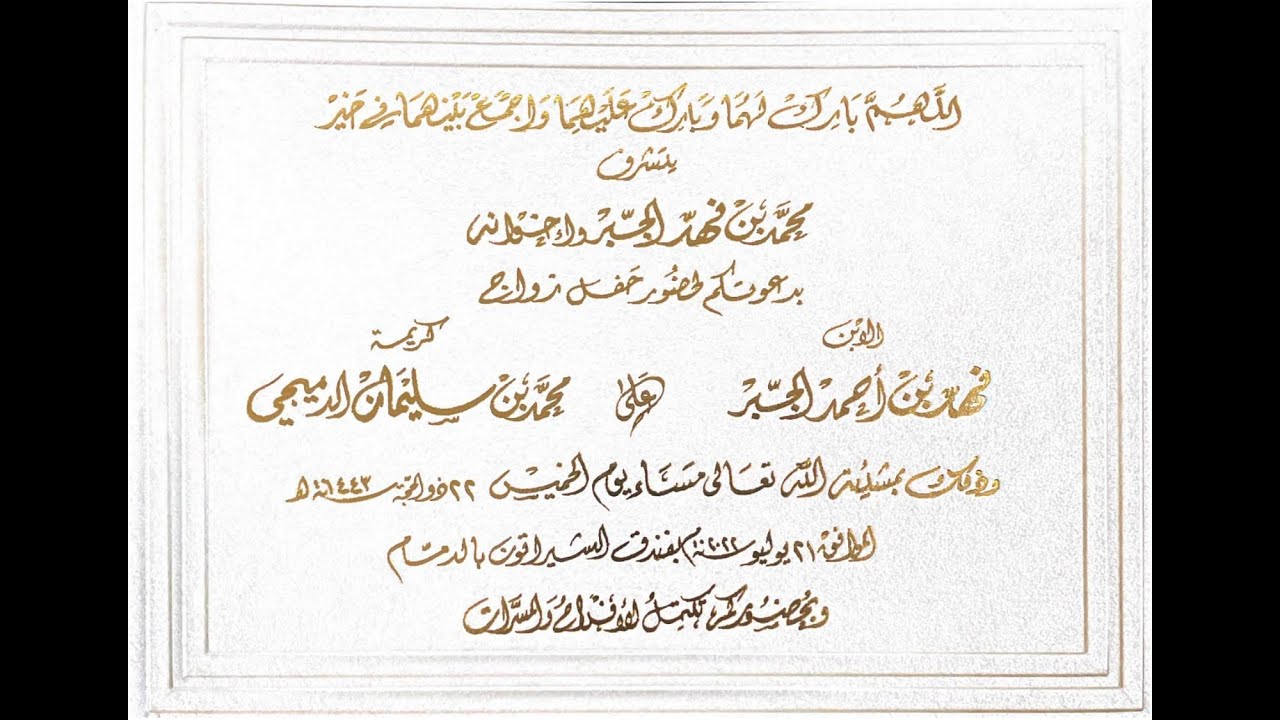 اللَّهُمَّ بَارِكْ لَهُمَا وَبَارِكْ عَلَيْهِمَا وَاجْمَعْ بَيْنَهُمَا فِي خَيْرْ
يتشرف
محمَّد بْن فهد الجبْر وإخوانه
بدعوتكم لحضُور حَفل زواج
الابْن
كريمة
فهد بْن أحمد الجبْر
عَلى
محمَّد بْن سليمَان الدميجي
وذلك بمشيئة الله تعَالى مسَاء يوم الخميس ٢٢ ذو الحجة سنة ١٤٤٣هـ
الموافق ٢١ يوليو سنة ٢٠٢٢م بفندق الشيراتون بالدمَّام
وبحضُوركم تكتملُ الأفراحُ وَالمسرَّات